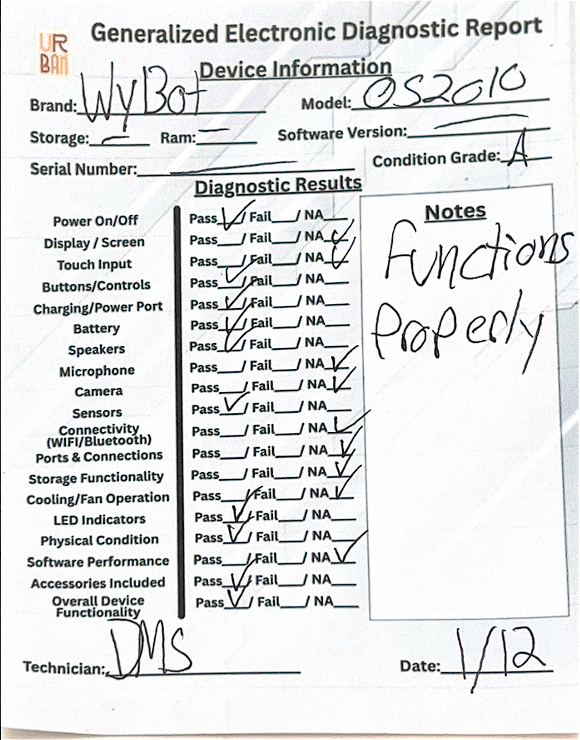 UR
BAN
Generalized Electronic Diagnostic Report
Device Information
Brand: WyBot Model: OS2010
Storage: — Ram: — Software Version: —
Serial Number: — Condition Grade: A
Diagnostic Results
Power On/Off Pass✓/ Fail__/ NA__
Display / Screen Pass__/ Fail__/ NA✓
Touch Input Pass__/ Fail__/ NA✓
Buttons/Controls Pass✓/ Fail__/ NA__
Charging/Power Port Pass✓/ Fail__/ NA__
Battery Pass✓/ Fail__/ NA__
Speakers Pass✓/ Fail__/ NA__
Microphone Pass__/ Fail__/ NA✓
Camera Pass__/ Fail__/ NA✓
Sensors Pass✓/ Fail__/ NA__
Connectivity
(WIFI/Bluetooth) Pass__/ Fail__/ NA✓
Ports & Connections Pass__/ Fail__/ NA✓
Storage Functionality Pass__/ Fail__/ NA✓
Cooling/Fan Operation Pass__/ Fail__/ NA✓
LED Indicators Pass✓/ Fail__/ NA__
Physical Condition Pass✓/ Fail__/ NA__
Software Performance Pass__/ Fail__/ NA✓
Accessories Included Pass✓/ Fail__/ NA__
Overall Device
Functionality Pass✓/ Fail__/ NA__
Notes
Functions
Properly
Technician: DMS Date: 1/12